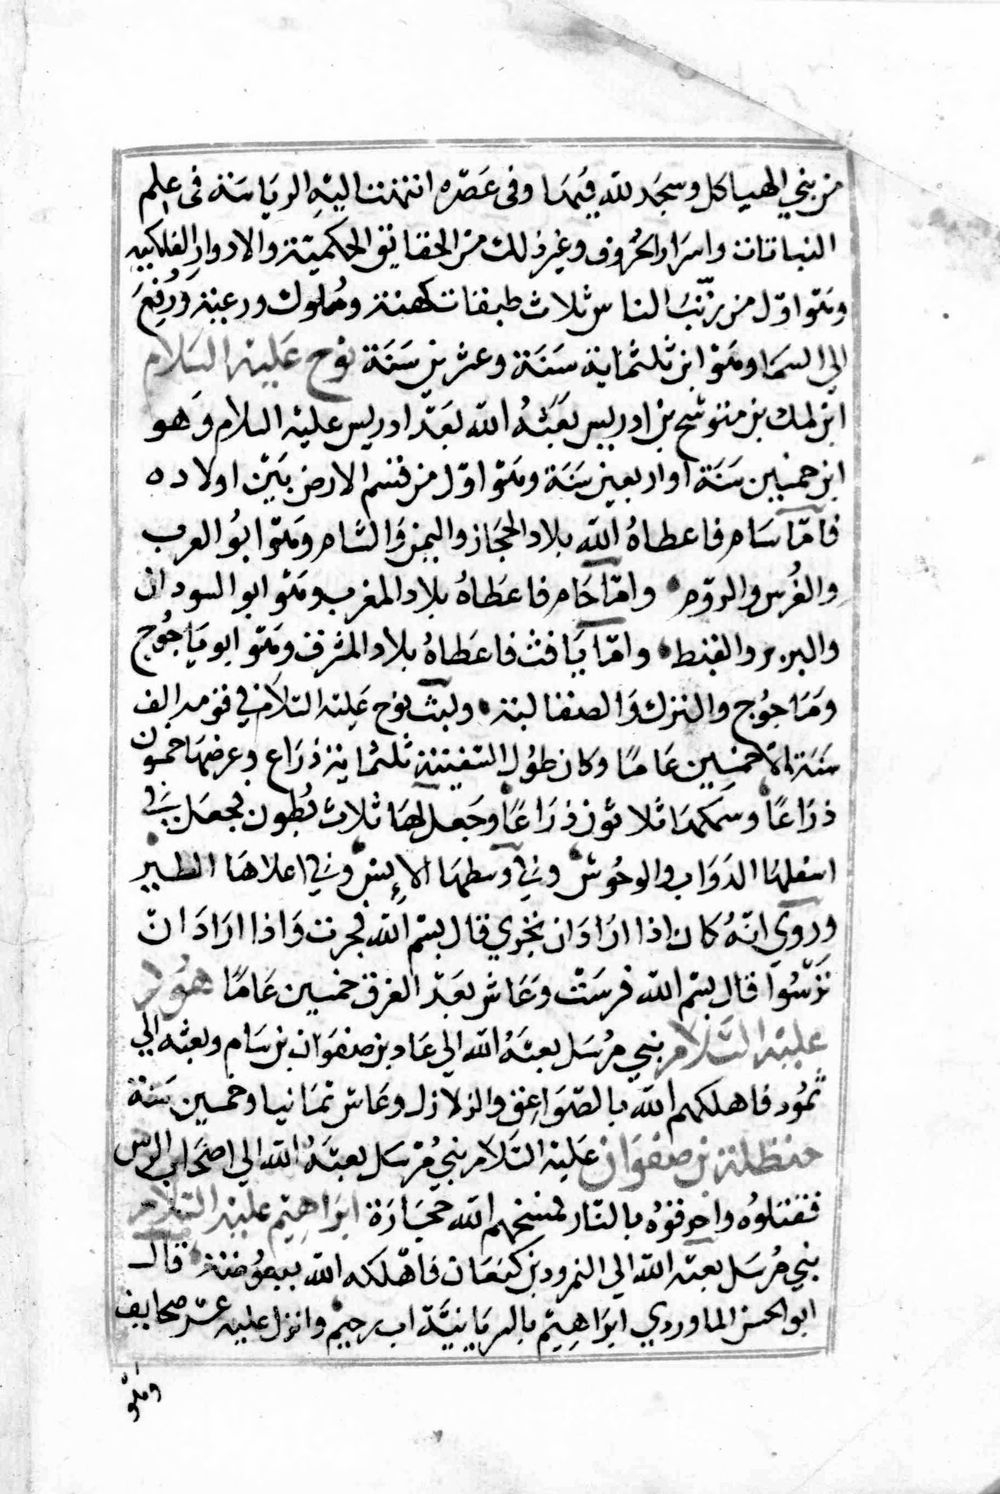 من بني الهياكل وسجد لله فيها وفي عصره انتهت اليه الرياسة في علم
النباتات واسرار الحروف وغير ذلك من الحقايق الحكمية والادوار الفلكية
وهو اوّل من رتّب الناس ثلاث طبقات كهنة وملوك ورعية ورفع
الي السما وهو ابن ثلثماية سنة وعشرين سنة نوح عليه السلام
ابن لمك بن متوشح بن ادريس بعثه الله بعد ادريس عليه السلام وهو
ابن خمسين سنة او اربعين سنة وهو اوّل من قسم الارض بين اولاده
فامّا سام فاعطاه الله بلاد الحجاز واليمن والشام وهو ابو العرب
والفرس والروم وامّا حام فاعطاه بلاد المغرب وهو ابو السودان
والبربر والقبط وامّا يافث فاعطاه بلاد المشرق وهو ابو ياجوج
وماجوج والترك والصقالبة ولبث نوح عليه السلام في قومه الف
سنة الا خمسين عاما وكان طول السفينة ثلثماية ذراع وعرضها خمسون
ذراعًا وسمكها ثلاثون ذراعًا وجعل لها ثلاث بطون فجعل في
اسفلها الدواب والوحوش وفي وسطها الانس وفي اعلاها الطير
وروي انّه كان اذا اراد ان تجري قال بسم الله فجرت واذا اراد ان
ترسوا قال بسم الله فرست وعاش بعد الغرق خمسين عامًا هود
عليه السّلام نبي مرسل بعثه الله الي عاد بن صفوان بن سام وبعثه الي
ثمود فاهلكهم الله بالصّواعق والزلازل وعاش ثمانيا وخمسين سنة
حنظلة بن صفوان عليه السلام نبي مرسل بعثه الله الي اصحاب الرس
فقتلوه واحرقوه بالنّار فمسخهم الله حجارة ابراهيم عليه السلام
نبي مرسل بعثه الله الي النمرود بن كنعان فاهلكه الله ببعوضة قال
ابو الحسن الماوردي ابراهيم بالسريانيّة اب رحيم وانزل عليه عشر صحايف
وهو